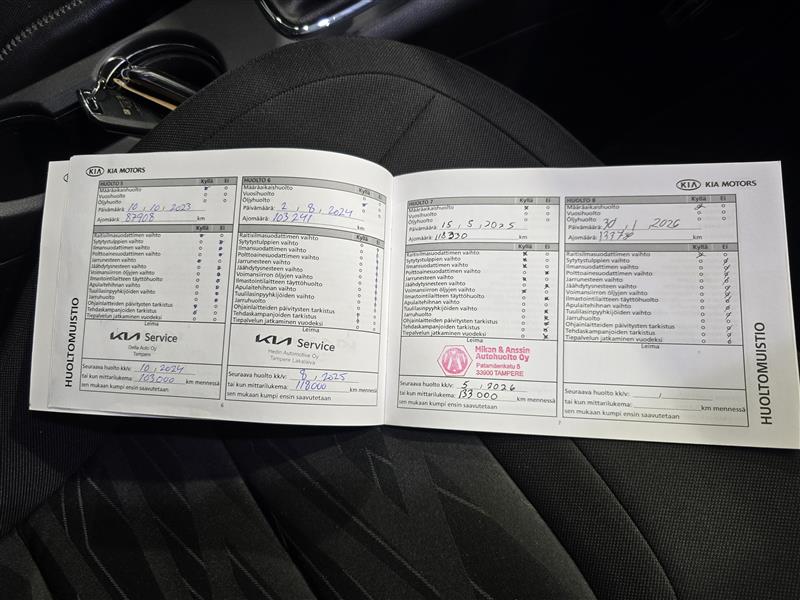 KIA MOTORS
HUOLTO 5 Kyllä Ei
Määräaikaishuolto
Vuosihuolto
Öljyhuolto
Päivämäärä: 10, 10, 2023
Ajomäärä: 87908 km
Kyllä Ei
Raitisilmasuodattimen vaihto
Sytytystulppien vaihto
Ilmansuodattimen vaihto
Polttoainesuodattimen vaihto
Jarrunesteen vaihto
Jäähdytysnesteen vaihto
Voimansiirron öljyjen vaihto
Ilmastointilaitteen täyttöhuolto
Apulaitehihnan vaihto
Tuulilasinpyyhkijöiden vaihto
Jarruhuolto
Ohjainlaitteiden päivitysten tarkistus
Tehdaskampanjoiden tarkistus
Tiepalvelun jatkaminen vuodeksi
Leima
KIA Service
Delta Auto Oy
Tampere
Seuraava huolto kk/v: 10, 2024
tai kun mittarilukema: 103000 km mennessä
sen mukaan kumpi ensin saavutetaan
6
HUOLTOMUISTIO
HUOLTO 6 Kyllä Ei
Määräaikaishuolto
Vuosihuolto
Öljyhuolto
Päivämäärä: 2, 8, 2024
Ajomäärä: 103241 km
Kyllä Ei
Raitisilmasuodattimen vaihto
Sytytystulppien vaihto
Ilmansuodattimen vaihto
Polttoainesuodattimen vaihto
Jarrunesteen vaihto
Jäähdytysnesteen vaihto
Voimansiirron öljyjen vaihto
Ilmastointilaitteen täyttöhuolto
Apulaitehihnan vaihto
Tuulilasinpyyhkijöiden vaihto
Jarruhuolto
Ohjainlaitteiden päivitysten tarkistus
Tehdaskampanjoiden tarkistus
Tiepalvelun jatkaminen vuodeksi
Leima
KIA Service
Hedin Automotive Oy
Tampere Lakalaiva
Seuraava huolto kk/v: 8, 2025
tai kun mittarilukema: 118000 km mennessä
sen mukaan kumpi ensin saavutetaan
HUOLTO 7 Kyllä Ei
Määräaikaishuolto
Vuosihuolto
Öljyhuolto
Päivämäärä: 15, 5, 2025
Ajomäärä: 118330 km
Kyllä Ei
Raitisilmasuodattimen vaihto
Sytytystulppien vaihto
Ilmansuodattimen vaihto
Polttoainesuodattimen vaihto
Jarrunesteen vaihto
Jäähdytysnesteen vaihto
Voimansiirron öljyjen vaihto
Ilmastointilaitteen täyttöhuolto
Apulaitehihnan vaihto
Tuulilasinpyyhkijöiden vaihto
Jarruhuolto
Ohjainlaitteiden päivitysten tarkistus
Tehdaskampanjoiden tarkistus
Tiepalvelun jatkaminen vuodeksi
Leima
Mikan & Anssin
Autohuolto Oy
Patamäenkatu 5
33900 TAMPERE
Seuraava huolto kk/v: 5, 2026
tai kun mittarilukema: 133000 km mennessä
sen mukaan kumpi ensin saavutetaan
7
KIA MOTORS
HUOLTO 8 Kyllä Ei
Määräaikaishuolto
Vuosihuolto
Öljyhuolto
Päivämäärä: 30, 1, 2026
Ajomäärä: km
Kyllä Ei
Raitisilmasuodattimen vaihto
Sytytystulppien vaihto
Ilmansuodattimen vaihto
Polttoainesuodattimen vaihto
Jarrunesteen vaihto
Jäähdytysnesteen vaihto
Voimansiirron öljyjen vaihto
Ilmastointilaitteen täyttöhuolto
Apulaitehihnan vaihto
Tuulilasinpyyhkijöiden vaihto
Jarruhuolto
Ohjainlaitteiden päivitysten tarkistus
Tehdaskampanjoiden tarkistus
Tiepalvelun jatkaminen vuodeksi
Leima
Seuraava huolto kk/v: ,
tai kun mittarilukema: km mennessä
sen mukaan kumpi ensin saavutetaan
HUOLTOMUISTIO